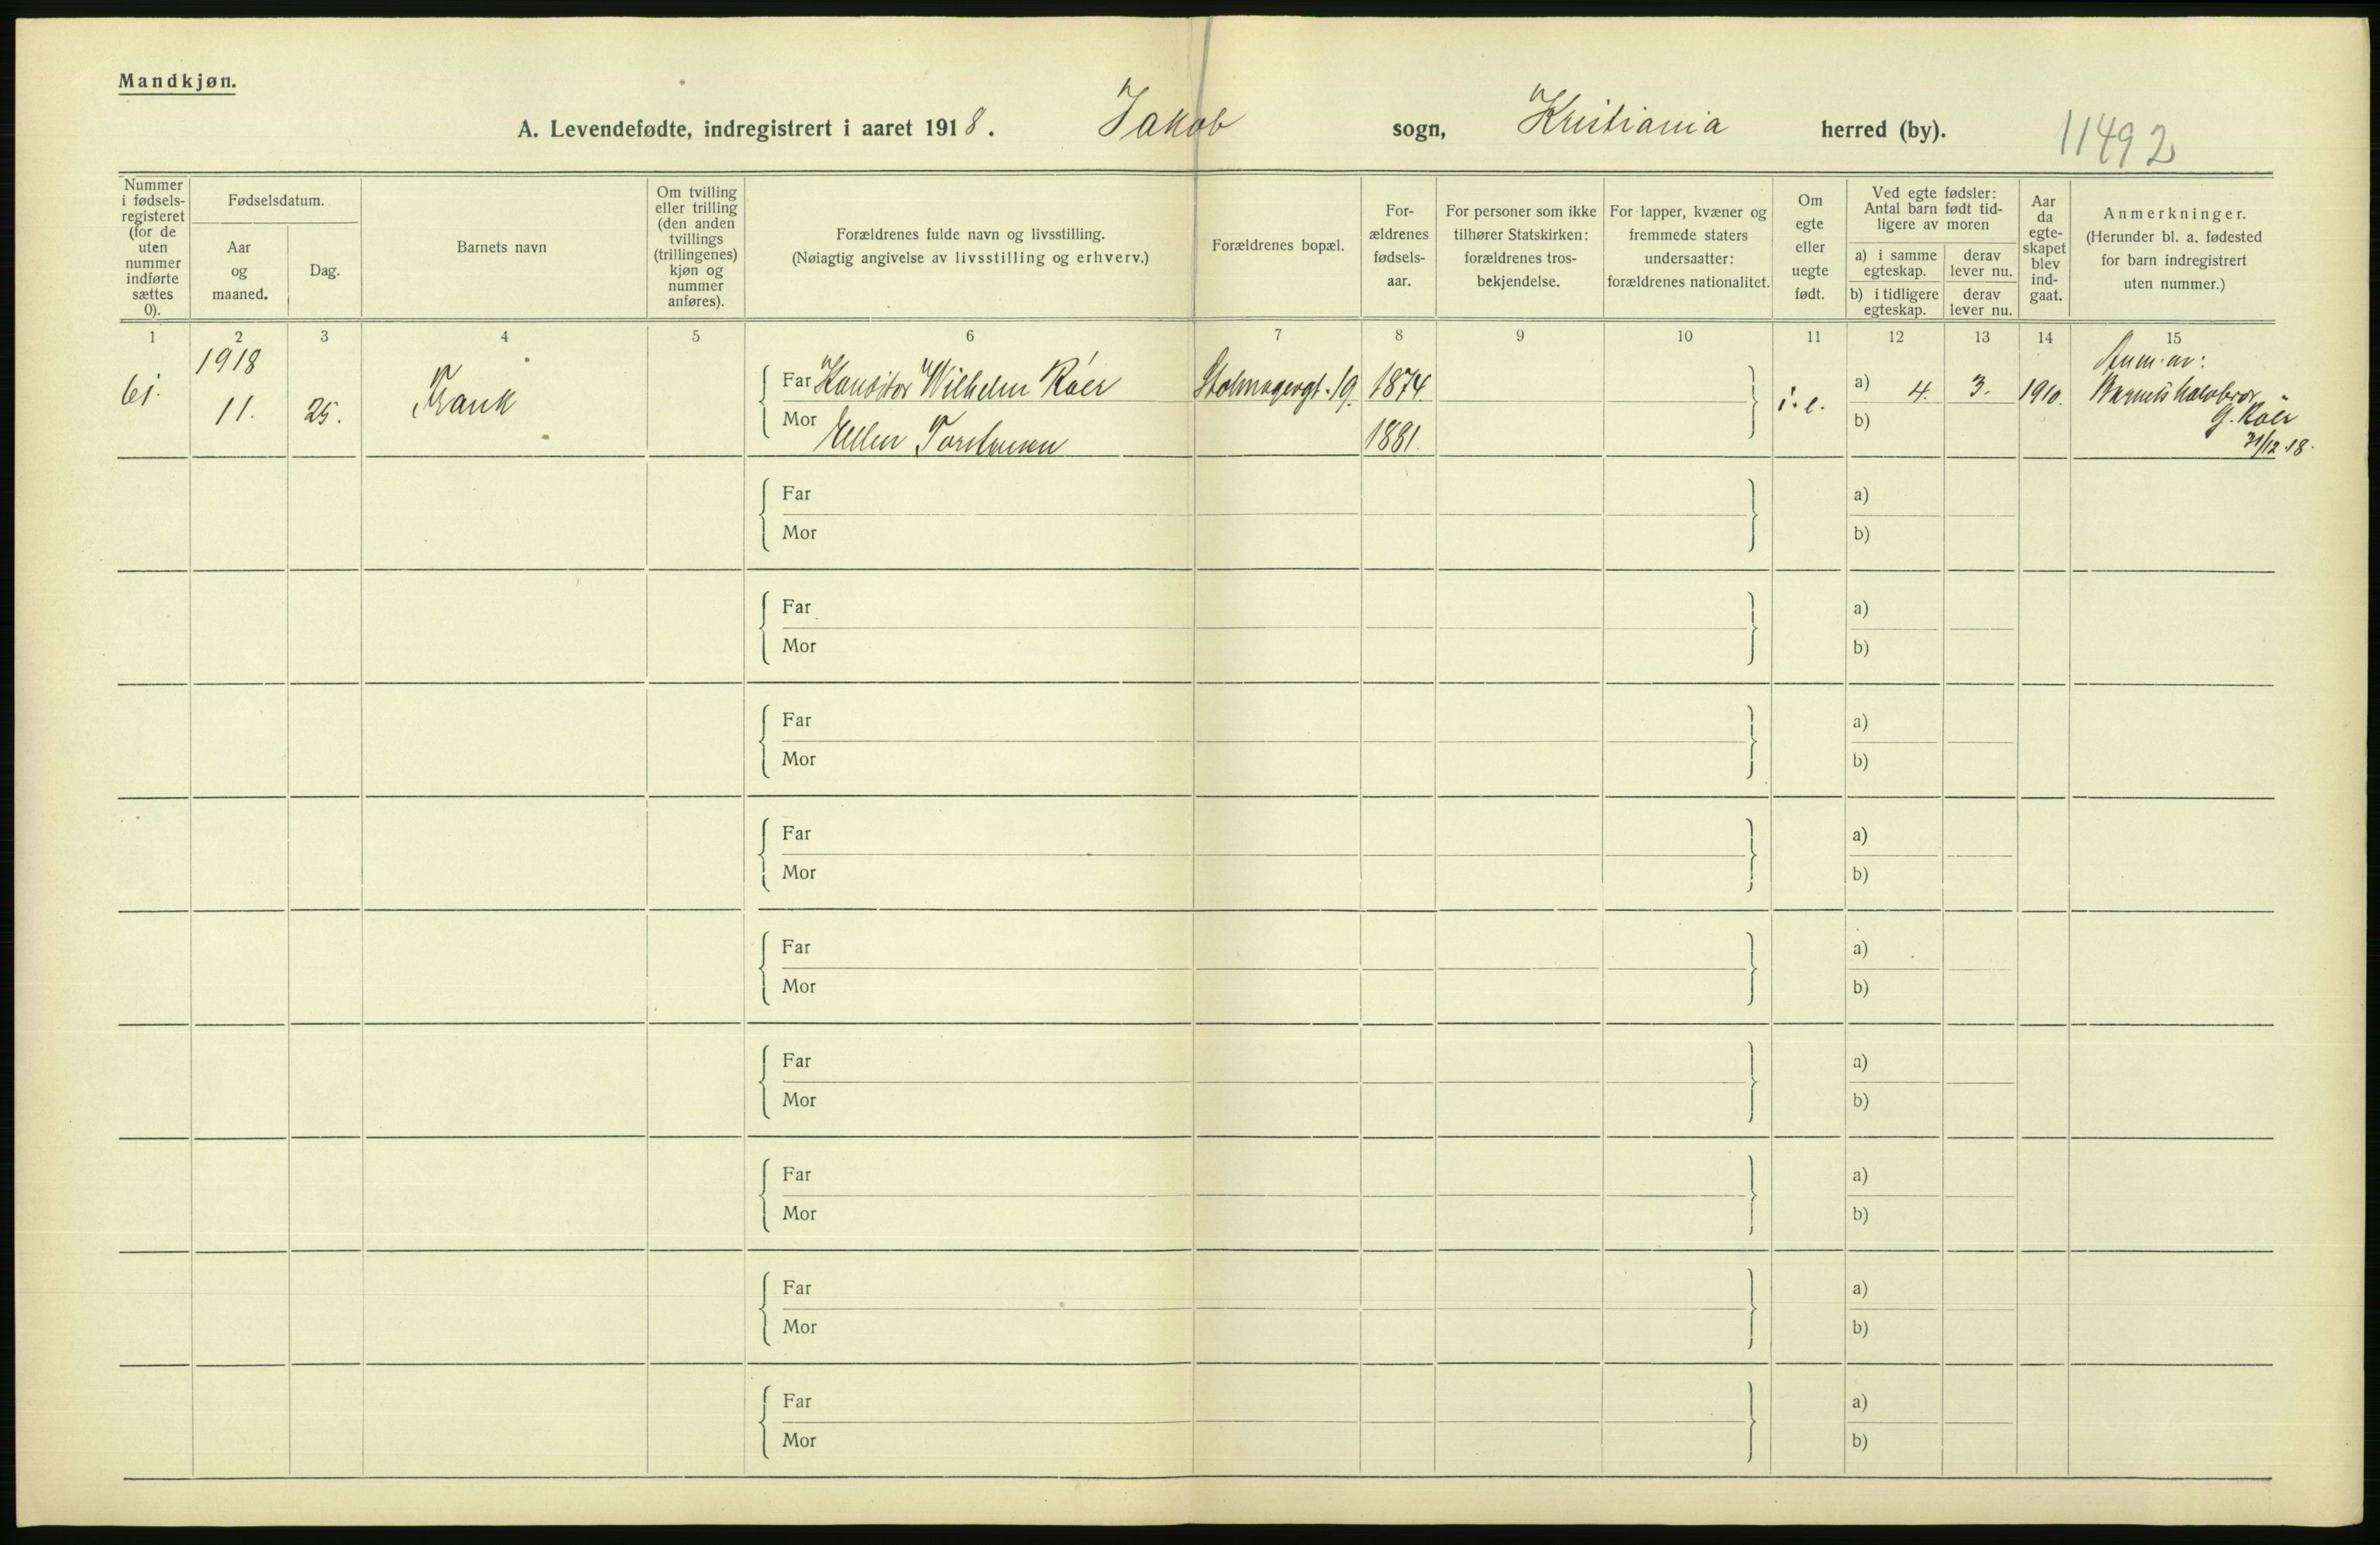 Mandkjøn.
A. Levendefødte, indregistrert i aaret 1918. Jakob sogn, Kristiania herred (by). 11492
Nummer i fødsels-registeret (for de uten nummer indførte sættes 0).
Fødselsdatum.
Aar og maaned.
Dag.
Barnets navn
Om tvilling eller trilling (den anden tvillings (trillingenes) kjøn og nummer anføres).
Forældrenes fulde navn og livsstilling.
(Nøiagtig angivelse av livsstilling og erhverv.)
Forældrenes bopæl.
For-ældrenes fødsels-aar.
For personer som ikke tilhører Statskirken: forældrenes tros-bekjendelse.
For lapper, kvæner og fremmede staters undersaatter: forældrenes nationalitet.
Om egte eller uegte født.
Ved egte fødsler: Antal barn født tid-ligere av moren
a) i samme egteskap.
derav lever nu.
b) i tidligere egteskap.
derav lever nu.
Aar da egte-skapet blev ind-gaat.
Anmerkninger.
(Herunder bl. a. fødested for barn indregistrert uten nummer.)
1 2 3 4 5 6 7 8 9 10 11 12 13 14 15
61. 1918 11. 25. Frank
Far Konditor Wilhelm Róer 19. 1874 i.e. a) 4. 3. 1910.
Mor Ellen 1881. b)
Anm. av:
Barnets halvbror
G. Róer
31/12 18.
Far a)
Mor b)
Far a)
Mor b)
Far a)
Mor b)
Far a)
Mor b)
Far a)
Mor b)
Far a)
Mor b)
Far a)
Mor b)
Far a)
Mor b)
Far a)
Mor b)